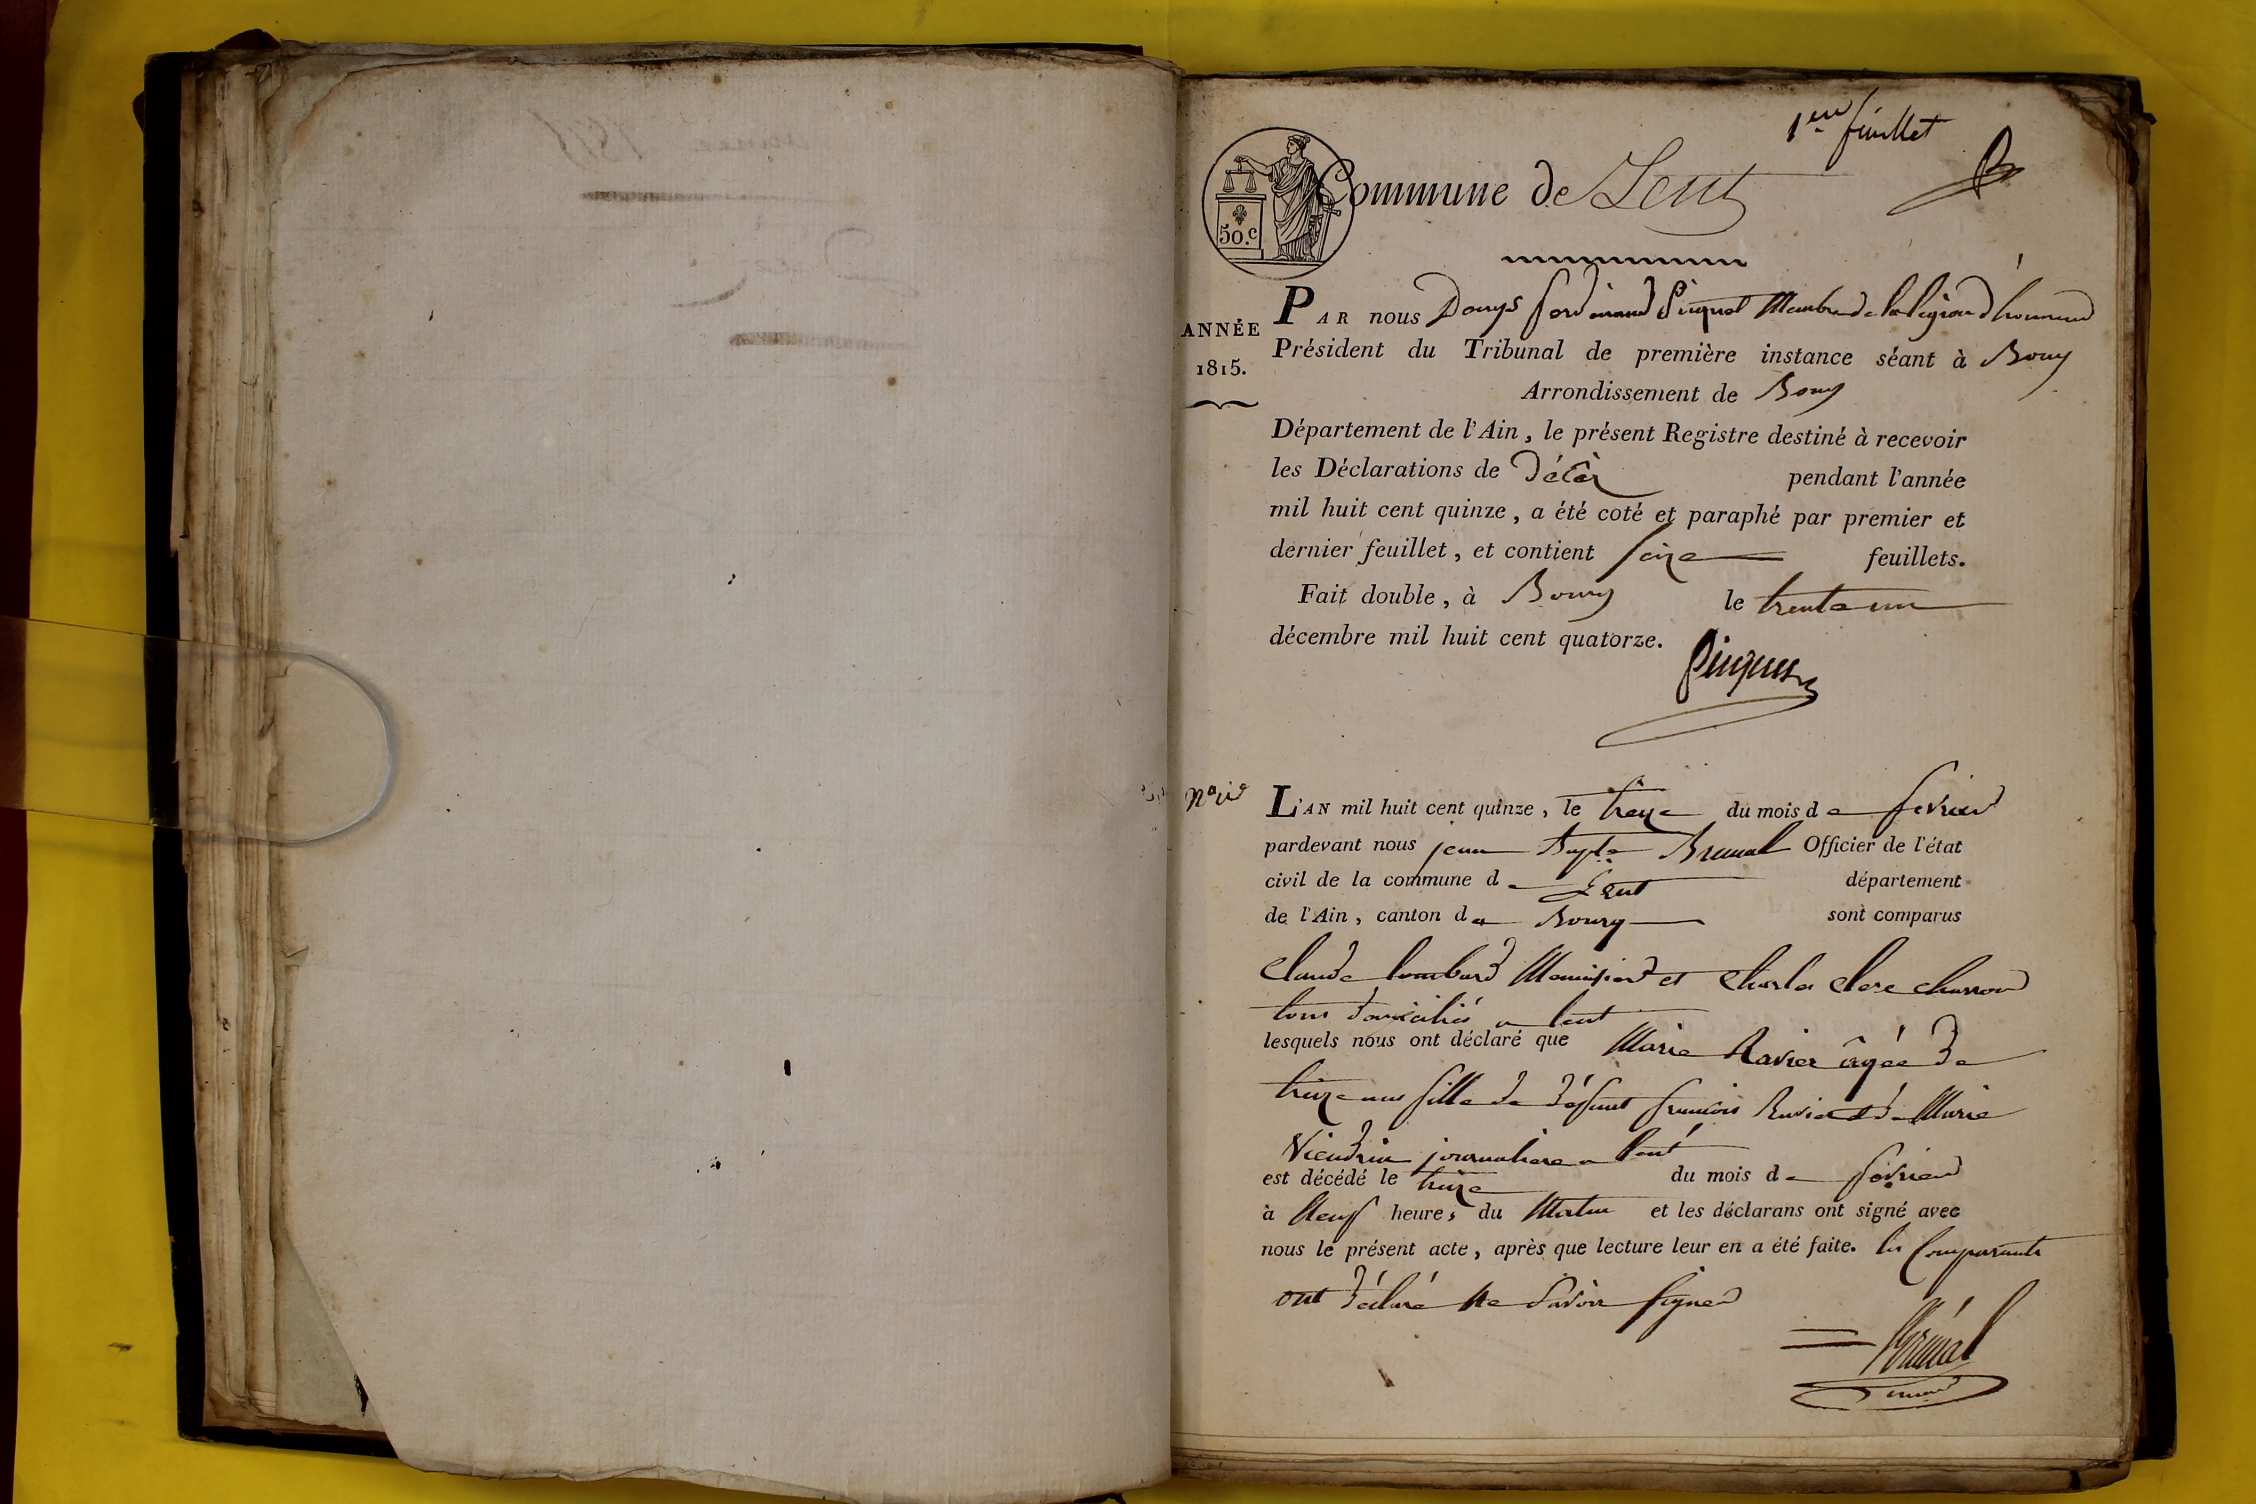 1er feuillet
Commune de Lent
50.c
PAR nous Denys Ferdinand Piquet Membre de la légion d'honneur
ANNÉE
1815.
Président du Tribunal de première instance séant à Bourg
Arrondissement de Bourg
Département de l'Ain, le présent Registre destiné à recevoir
les Déclarations de Décès pendant l'année
mil huit cent quinze, a été coté et paraphé par premier et
dernier feuillet, et contient seize feuillets.
Fait double, à Bourg le trente un
décembre mil huit cent quatorze.
L'AN mil huit cent quinze, le treize du mois de fevrier
pardevant nous jean Bapte Brunal Officier de l'état
civil de la commune de Lent département
de l'Ain, canton de Bourg sont comparus
Claude lombard et Charles Clere charron
tous domiciliés a lent
lesquels nous ont déclaré que Marie Ravier âgée de
treize ans fille de défunt françois Ravier et de Marie
journaliere a lent
est décédé le treize du mois de fevrier
à Neuf heures du Matin et les déclarans ont signé avec
nous le présent acte, après que lecture leur en a été faite. les Comparants
ont déclaré ne savoir signer